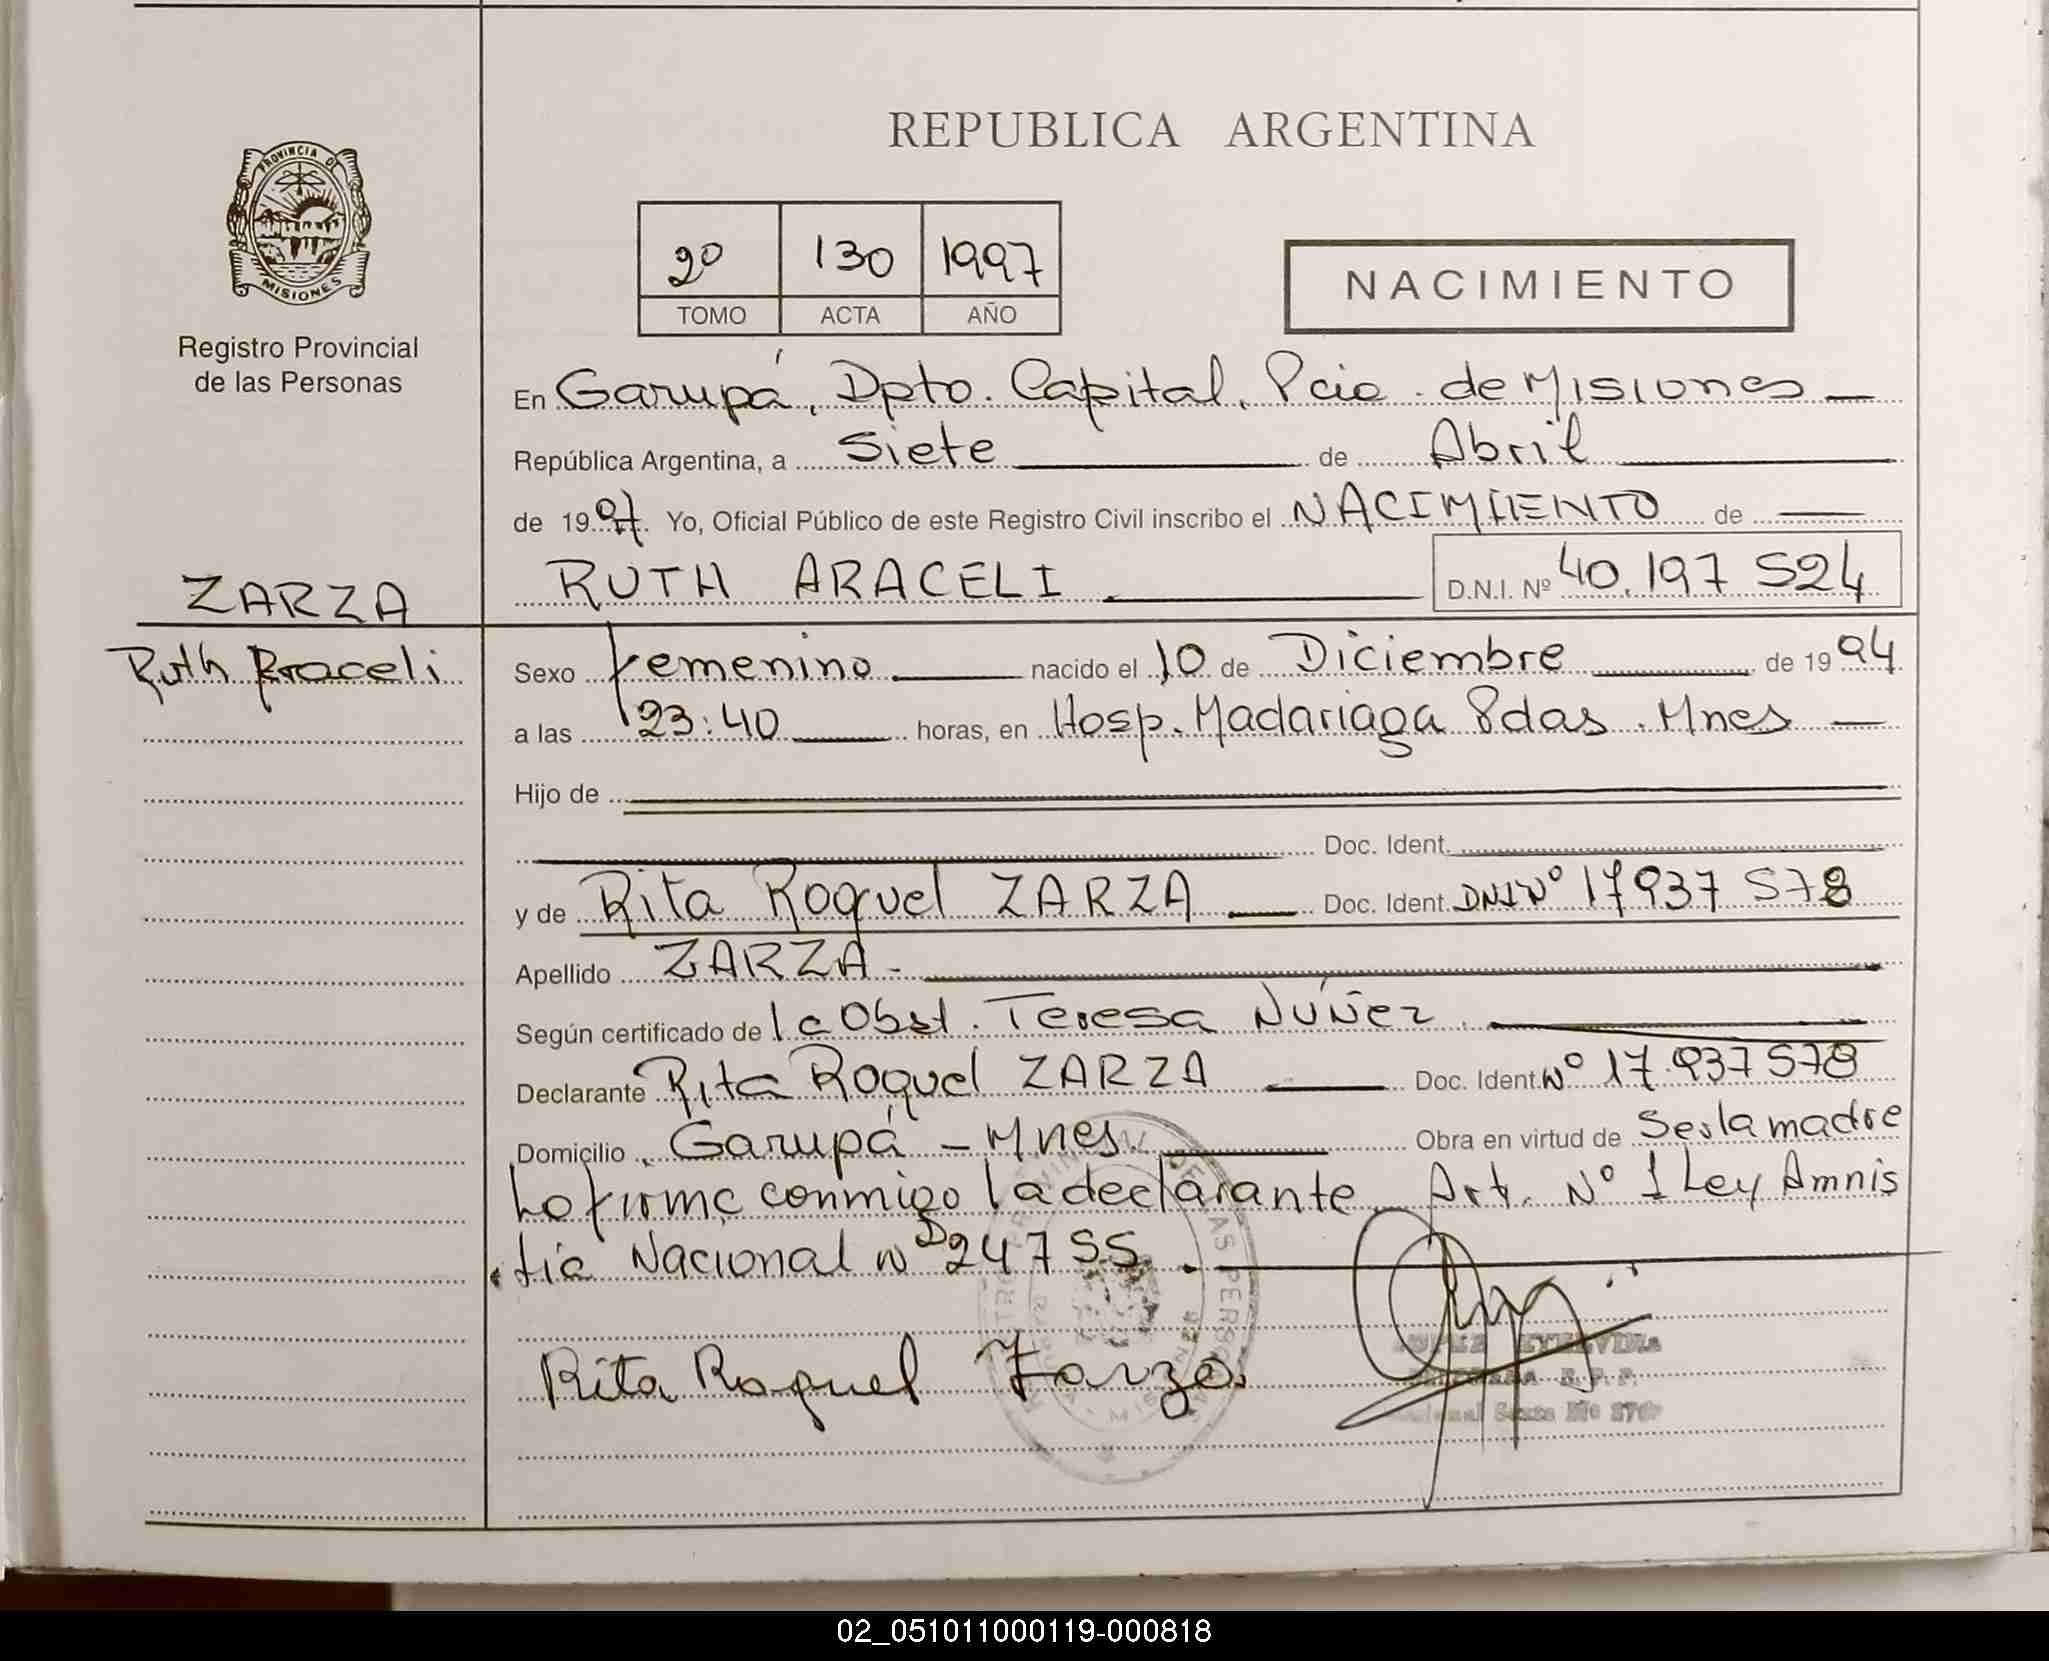 REPUBLICA ARGENTINA
PROVINCIA DE
MISIONES
Registro Provincial
de las Personas
2º 130 1997
TOMO ACTA AÑO
NACIMIENTO
En Garupá, Dpto. Capital, Pcia. de Misiones
República Argentina, a Siete de Abril
de 1997 Yo, Oficial Público de este Registro Civil inscribo el NACIMIENTO de
ZARZA
RUTH ARACELI D.N.I. Nº 40.197 524
Ruth Araceli
Sexo Femenino nacido el 10 de Diciembre de 1994
a las 23:40 horas, en Hosp. Madariaga Pdas. Mnes
Hijo de
Doc. Ident.
y de Rita Raquel ZARZA Doc. Ident. DNI Nº 17937 578
Apellido ZARZA.
Según certificado de la Obst. Teresa Núñez
Declarante Rita Raquel ZARZA Doc. Ident. Nº 17.937 578
Domicilio Garupá - Mnes Obra en virtud de Ser la madre
La firma conmigo la declarante Art. Nº 1 Ley Amnis
tia Nacional Nº 24755.
Rita Raquel Zarza.
02_051011000119-000818